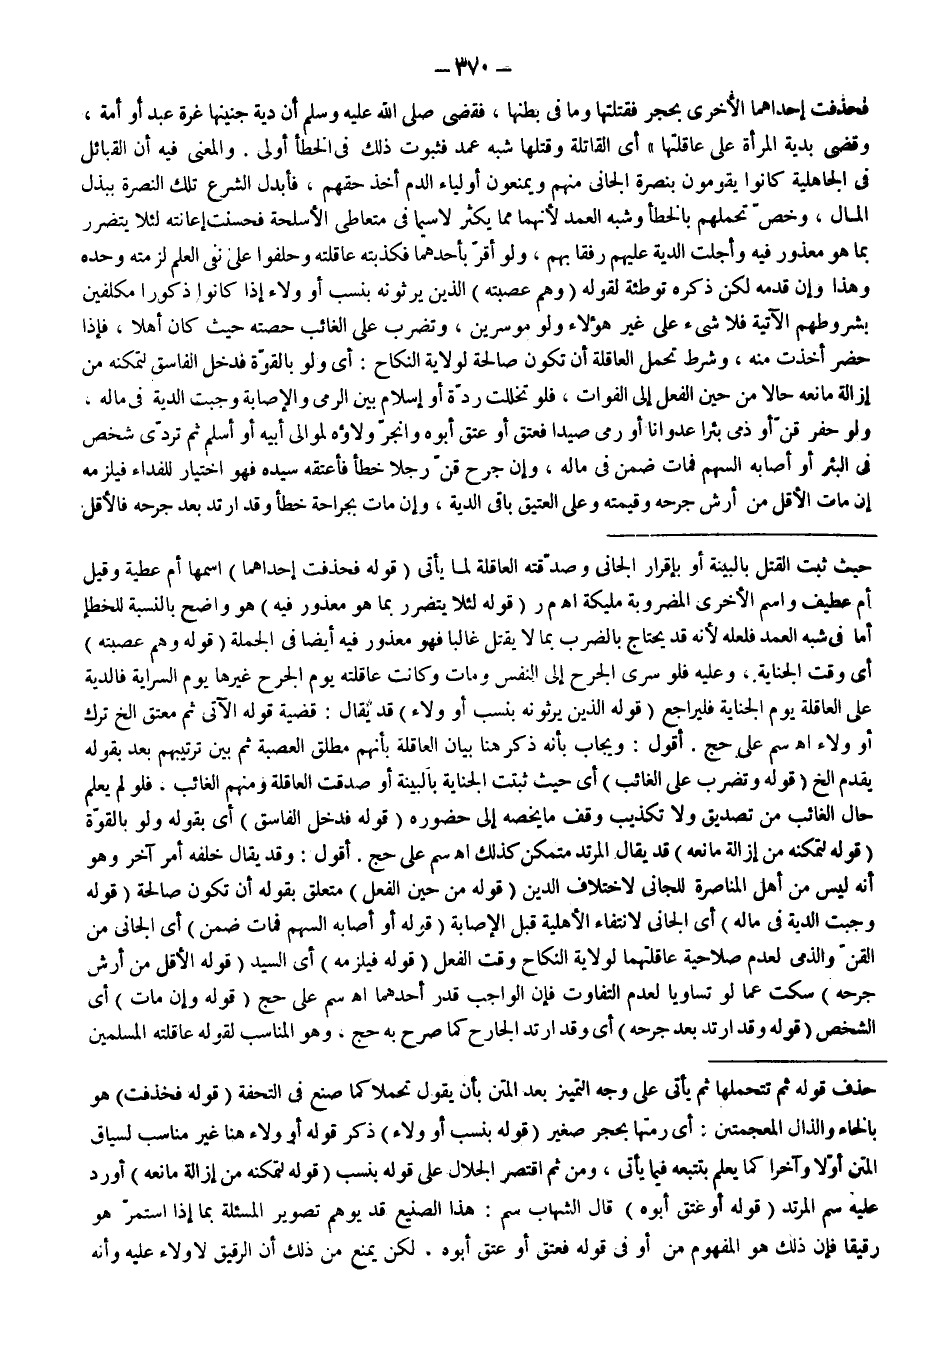 – ٣٧٠ –
فحذفت إحداهما الأخرى بحجر فقتلتها وما فى بطنها ، فقضى صلى الله عليه وسلم أن دية جنينها غرة عبد أو أمة ،
وقضى بدية المرأة على عاقلتها » أى القاتلة وقتلها شبه عمد فثبوت ذلك فى الخطأ أولى . والمعنى فيه أن القبائل
فى الجاهلية كانوا يقومون بنصرة الجانى منهم ويمنعون أولياء الدم أخذ حقهم ، فأبدل الشرع تلك النصرة ببذل
المال ، وخصّ تحملهم بالخطأ وشبه العمد لأنهما مما يكثر لاسيما فى متعاطى الأسلحة فحسنت إعانته لئلا يتضرر
بما هو معذور فيه وأجلت الدية عليهم رفقا بهم ، ولو أقرّ بأحدهما فكذبته عاقلته وحلفوا على نفى العلم لزمته وحده
وهذا وإن قدمه لكن ذكره توطئة لقوله ( وهم عصبته ) الذين يرثونه بنسب أو ولاء إذا كانوا ذكورا مكلفين
بشروطهم الآتية فلا شىء على غير هؤلاء ولو موسرين ، وتضرب على الغائب حصته حيث كان أهلا ، فإذا
حضر أخذت منه ، وشرط تحمل العاقلة أن تكون صالحة لولاية النكاح : أى ولو بالقوّة فدخل الفاسق لتمكنه من
إزالة مانعه حالا من حين الفعل إلى الفوات ، فلو تخللت ردّة أو إسلام بين الرمى والإصابة وجبت الدية فى ماله .
ولو حفر قنّ أو ذمى بئرا عدوانا أو رمى صيدا فعتق أو عتق أبوه وانجرّ ولاؤه لموالى أبيه أو أسلم ثم تردّى شخص
فى البئر أو أصابه السهم فمات ضمن فى ماله ، وإن جرح قنّ رجلا خطأ فأعتقه سيده فهو اختيار للفداء فيلزمه
إن مات الأقل من أرش جرحه وقيمته وعلى العتيق باقى الدية ، وإن مات بجراحة خطأ وقد ارتد بعد جرحه فالأقل
حيث ثبت القتل بالبينة أو بإقرار الجانى وصدّقته العاقلة لما يأتى ( قوله فحذفت إحداهما ) اسمها أم عطية وقيل
أم عطيف واسم الأخرى المضروبة مليكة اه م ر ( قوله لئلا يتضرر بما هو معذور فيه ) هو واضح بالنسبة للخطإ
أما فى شبه العمد فلعله لأنه قد يحتاج بالضرب بما لا يقتل غالبا فهو معذور فيه أيضا فى الجملة ( قوله وهم عصبته )
أى وقت الجناية ، وعليه فلو سرى الجرح إلى النفس ومات وكانت عاقلته يوم الجرح غيرها يوم السراية فالدية
على العاقلة يوم الجناية فليراجع ( قوله الذين يرثونه بنسب أو ولاء ) قد يُقال : قضية قوله الآتى ثم معتق الخ ترك
أو ولاء اه سم على حج . أقول : ويجاب بأنه ذكر هنا بيان العاقلة بأنهم مطلق العصبة ثم بين ترتيبهم بعد بقوله
يقدم الخ ( قوله وتضرب على الغائب ) أى حيث ثبتت الجناية بالبينة أو صدقت العاقلة ومنهم الغائب . فلو لم يعلم
حال الغائب من تصديق ولا تكذيب وقف مايخصه إلى حضوره ( قوله فدخل الفاسق ) أى بقوله ولو بالقوّة
( قوله لتمكنه من إزالة مانعه ) قد يقال المرتد متمكن كذلك اه سم على حج . أقول : وقد يقال خلفه أمر آخر وهو
أنه ليس من أهل المناصرة للجانى لاختلاف الدين ( قوله من حين الفعل ) متعلق بقوله أن تكون صالحة ( قوله
وجبت الدية فى ماله ) أى الجانى لانتفاء الأهلية قبل الإصابة ( قوله أو أصابه السهم فمات ضمن ) أى الجانى من
القنّ والذمى لعدم صلاحية عاقلتهما لولاية النكاح وقت الفعل ( قوله فيلزمه ) أى السيد ( قوله الأقل من أرش
جرحه ) سكت عما لو تساويا لعدم التفاوت فإن الواجب قدر أحدهما اه سم على حج ( قوله وإن مات ) أى
الشخص ( قوله وقد ارتد بعد جرحه ) أى وقد ارتد الجارح كما صرح به حج . وهو المناسب لقوله عاقلته المسلمين
حذف قوله ثم تتحملها ثم يأتى على وجه التمييز بعد المتن بأن يقول تحملا كما صنع فى التحفة ( قوله فخذفت) هو
بالخاء والذال المعجمتين : أى رمتها بحجر صغير ( قوله بنسب أو ولاء ) ذكر قوله أو ولاء هنا غير مناسب لسياق
المتن أوّلا وآخرا كما يعلم بتتبعه فيما يأتى ، ومن ثم اقتصر الجلال على قوله بنسب ( قوله لتمكنه من إزالة مانعه ) أورد
عليه سم المرتد ( قوله أو عتق أبوه ) قال الشهاب سم : هذا الصنيع قد يوهم تصوير المسئلة بما إذا استمرّ هو
رقيقا فإن ذلك هو المفهوم من أو فى قوله فعتق أو عتق أبوه . لكن يمنع من ذلك أن الرقيق لا ولاء عليه وأنه